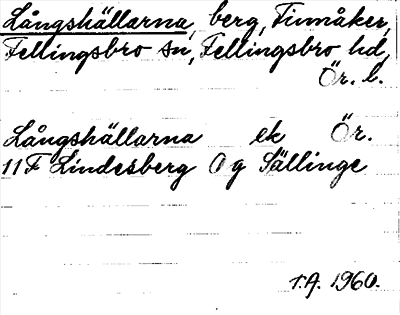 Långshällarna, berg, Finnåker,
Fellingsbro sn, Fellingsbro hd,
Ör. l.
Långshällarna ek Ör.
11F Lindesberg 0 g Sällinge
T.A. 1960.